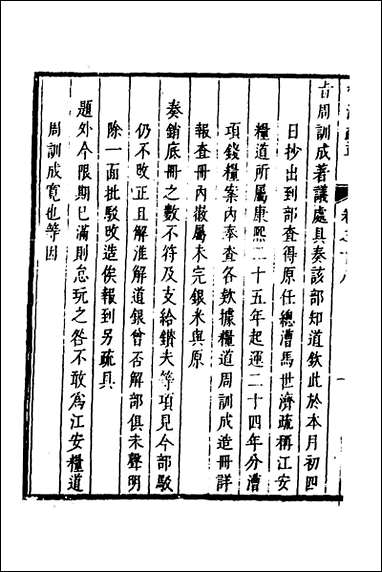 旨周訓成著議處具奏該部知道欽此於本月初四
日抄出到部查得原任總漕馬世濟疏稱江安
糧道所屬康熙二十五年起運二十四年分漕
項錢糧案內奉查各欵據糧道周訓成造冊詳
報查冊內徽屬未完銀米與原
奏銷底冊之數不符及支給縴夫等項見今部駁
仍不改正且解淮解道銀曾否解部俱未聲明
除一面批駁改造俟報到另疏具
題外今限期已滿則怠玩之咎不敢爲江安糧道
周訓成寬也等因